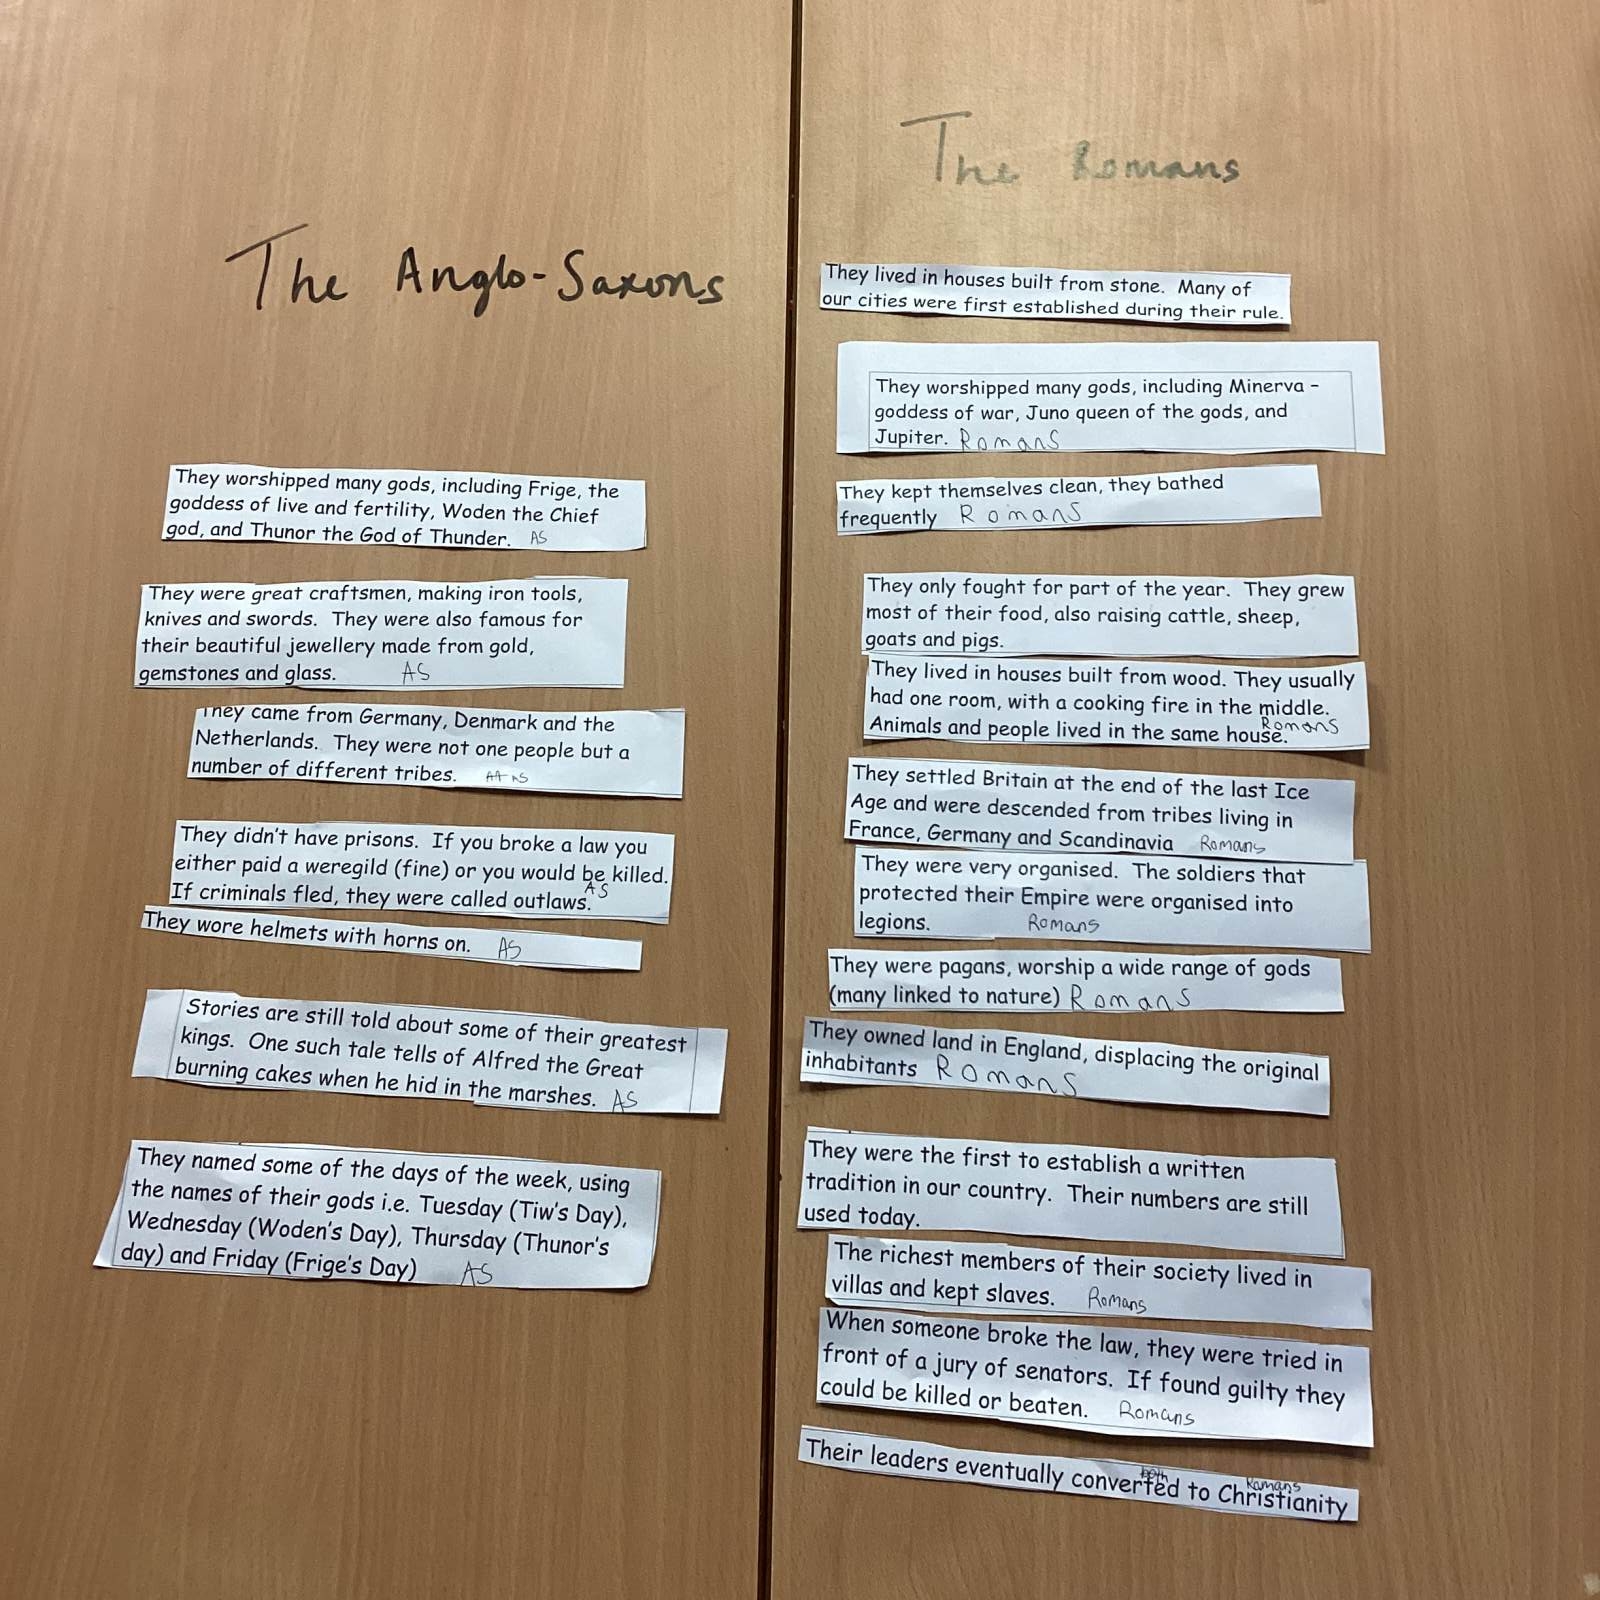 The Anglo-Saxons
They worshipped many gods, including Frige, the
goddess of live and fertility, Woden the Chief
god, and Thunor the God of Thunder. AS
They were great craftsmen, making iron tools,
knives and swords. They were also famous for
their beautiful jewellery made from gold,
gemstones and glass. AS
They came from Germany, Denmark and the
Netherlands. They were not one people but a
number of different tribes. AS
They didn't have prisons. If you broke a law you
either paid a weregild (fine) or you would be killed.
If criminals fled, they were called outlaws. AS
They wore helmets with horns on. AS
Stories are still told about some of their greatest
kings. One such tale tells of Alfred the Great
burning cakes when he hid in the marshes. AS
They named some of the days of the week, using
the names of their gods i.e. Tuesday (Tiw's Day),
Wednesday (Woden's Day), Thursday (Thunor's
day) and Friday (Frige's Day) AS
The Romans
They lived in houses built from stone. Many of
our cities were first established during their rule.
They worshipped many gods, including Minerva –
goddess of war, Juno queen of the gods, and
Jupiter. Romans
They kept themselves clean, they bathed
frequently Romans
They only fought for part of the year. They grew
most of their food, also raising cattle, sheep,
goats and pigs.
They lived in houses built from wood. They usually
had one room, with a cooking fire in the middle.
Animals and people lived in the same house. Romans
They settled Britain at the end of the last Ice
Age and were descended from tribes living in
France, Germany and Scandinavia Romans
They were very organised. The soldiers that
protected their Empire were organised into
legions. Romans
They were pagans, worship a wide range of gods
(many linked to nature) Romans
They owned land in England, displacing the original
inhabitants Romans
They were the first to establish a written
tradition in our country. Their numbers are still
used today.
The richest members of their society lived in
villas and kept slaves. Romans
When someone broke the law, they were tried in
front of a jury of senators. If found guilty they
could be killed or beaten. Romans
both Romans
Their leaders eventually converted to Christianity